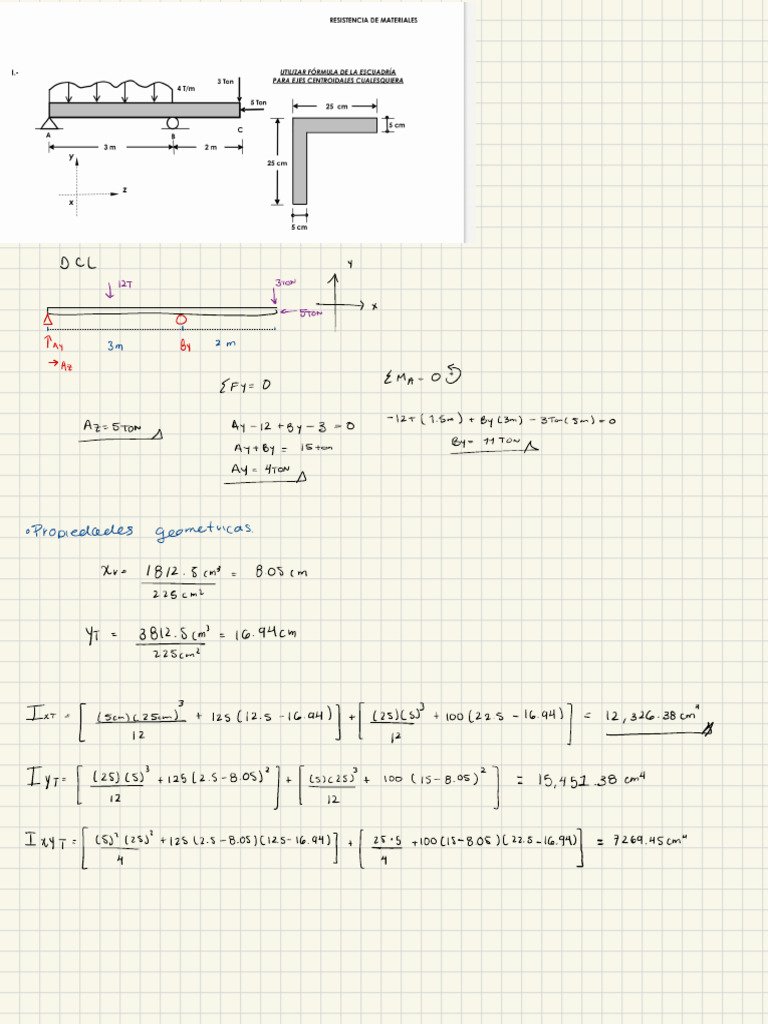 RESISTENCIA DE MATERIALES
I.-
UTILIZAR FÓRMULA DE LA ESCUADRÍA
PARA EJES CENTROIDALES CUALESQUIERA
4 T/m
3 Ton
5 Ton
A
B
C
3 m
2 m
y
z
x
25 cm
5 cm
25 cm
5 cm
DCL
12T
3TON
5TON
Y
X
Ay
3m
By
2 m
Az
ΣFy = 0
ΣMA = 0
Az = 5TON
Ay - 12 + By - 3 = 0
-12T (1.5m) + By (3m) - 3Ton (5m) = 0
Ay + By = 15 ton
By = 11 TON
Ay = 4TON
• Propiedades geometricas.
= 1812.5 cm³ / 225 cm² = 8.05 cm
YT = 3812.5 cm³ / 225 cm² = 16.94 cm
IXT = [(5cm)(25cm)³ / 12 + 125 (12.5 - 16.94)] + [(25)(5)³ / 12 + 100 (22.5 - 16.94)] = 12,326.38 cm⁴
IYT = [(25)(5)³ / 12 + 125 (2.5 - 8.05)²] + [(5)(25)³ / 12 + 100 (15 - 8.05)²] = 15,451.38 cm⁴
IXYT = [(5)² (25)² / 4 + 125 (2.5 - 8.05)(12.5 - 16.94)] + [25·5 / 4 + 100 (15 - 8.05)(22.5 - 16.94)] = 7269.45 cm⁴